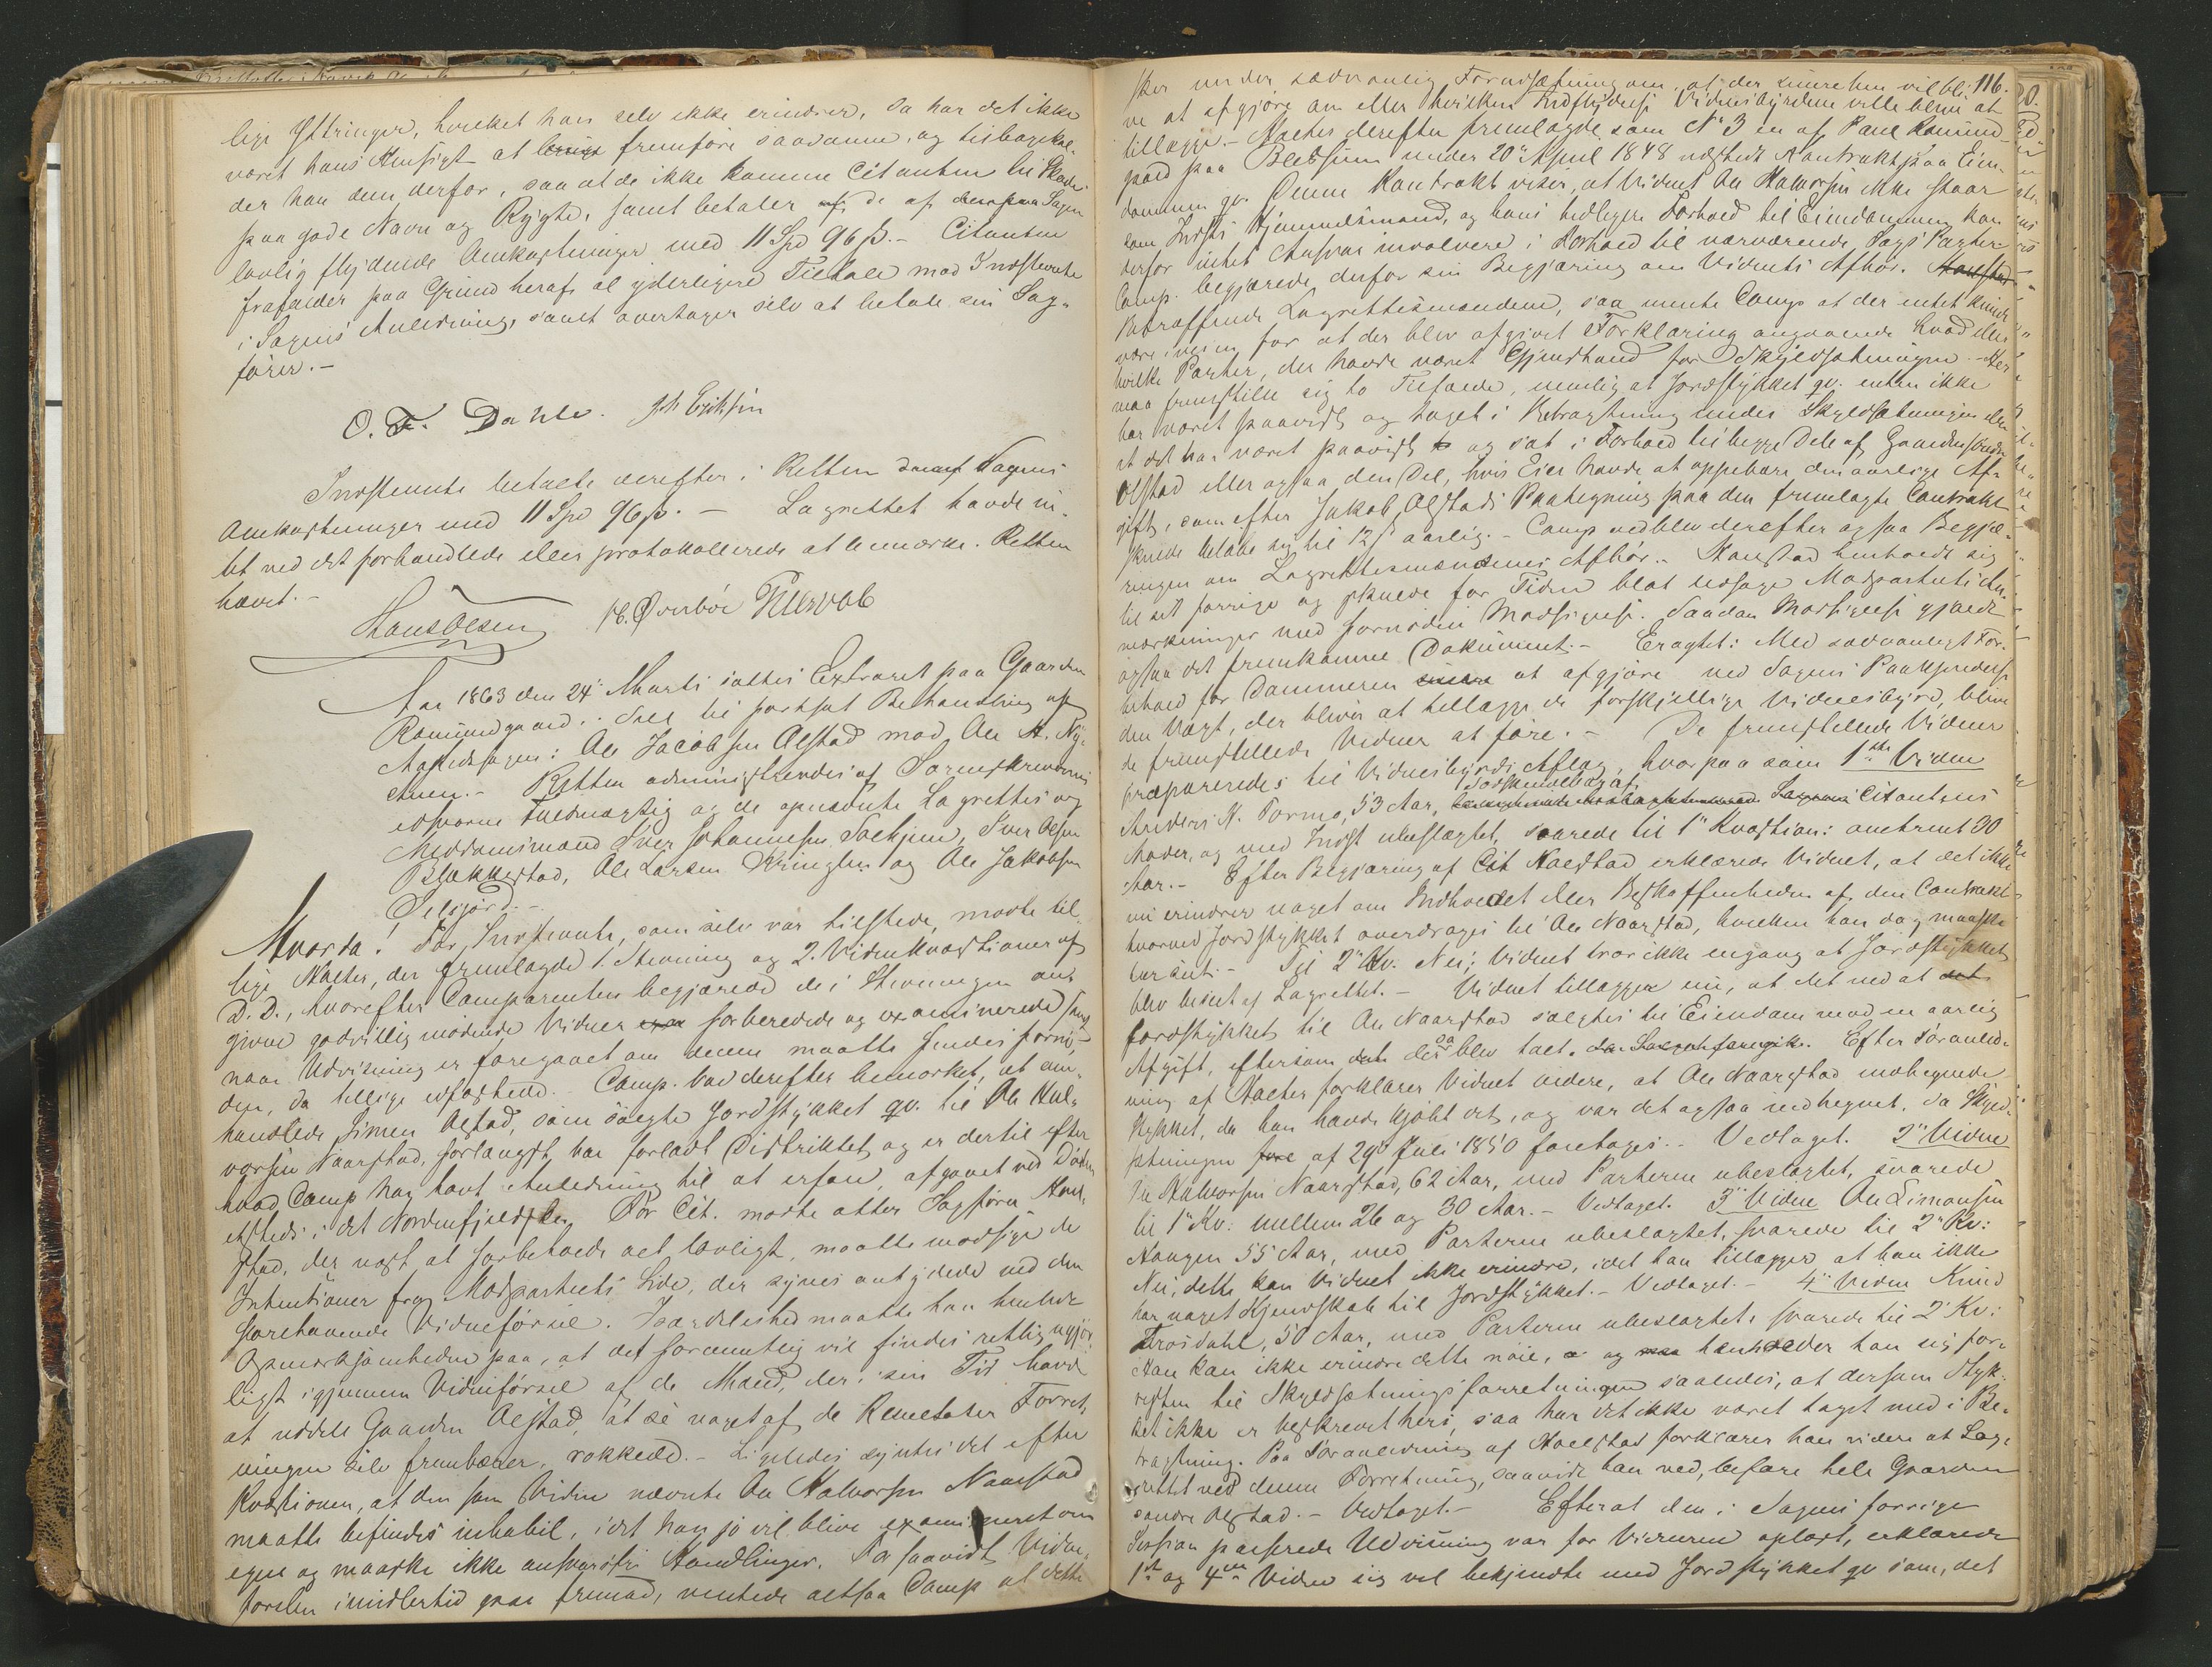 lige Yttringer, hvilket han selv ikke erindrer, da har det ikke
været hans Hensigt at fremføre saadanne, og tilbagekal-
der han dem derfor, saa at de ikke komme Citanten til Skade
paa gode Navn og Rygte, samt betaler de af Sagen
lovlig flydende Omkostninger med 11 Spd 96 ß. - Citanten
frafalder paa Grund heraf al yderligere Tiltale mod Indstevnte
i Sagens Anledning, samt overtager selv at betale sin Sag-
fører. -
O. F. Dahle. Joh Eriksen
Indstevnte betalte derefter i Retten Sagens
Omkostninger med 11 Spd 96 ß. - Lagrettet havde in-
tet ved det forhandlede eller protokollerede at bemærke. Retten
hævet. -
Hans Olsen H. Øverbøe
Aar 1863 den 24de Marts sattes Extraret paa Gaarden
Romundgaard i Sell til fortsat Behandling af
Aastedssagen: Ole Jacobsen Olstad mod Ole H.
Retten administreredes af Sorenskriverens
edsvorne Fuldmægtig og de opnævnte Lagrettes og
Meddomsmænd Iver Johannesen Selhjem, Iver Olsen
Blekkestad, Ole Larsen Kringlen og Ole Jakobsen
Selsjord. -
Hvorda! For Indstevnte, som selv var tilstede, mødte til-
lige Aalter, der fremlagde 1. Stevning og 2. Vidnekvæstioner af
D. D., hvorefter Comparenten begjærede de i Stevningen an-
givne godvillig mødende Vidner forberedede og examinerede samt
naar Udvisning er foregaaet om denne maatte findes fornø-
den, da tillige edfæstede. Comp. bad derefter bemærket, at om-
handlede Simen Olstad, som solgte Jordstykket qv. til Ole Hal-
vorsen Naarstad, forlængst har forladt Distriktet og er dertil efter
hvad Comp har havt Anledning til at erfare, afgaaet ved Døden
etsteds i det Nordenfjeldske. For Cit. mødte atter Sagfører Haal-
stad, der næst at forbeholde alt lovligt, maatte modsige de
Intentioner fra Modpartiets Side, der synes antydede ved den
forehavende Vidneførsel. Isærdeleshed maatte han henlede
Opmærksomheden paa, at det formentlig vil findes retlig ugjør-
ligt igjennem Vidneførsel af de Mænd, der i sin Tid havde
at uddele Gaarden Olstad, at se noget af de Resultater Forret-
ningen selv frembærer, rokkede. - Ligeledes syntes det efter
Kvæstionen, at den som Vidne nævnte Ole Halvorsen Naarstad
maatte befindes inhabil, idet han jo vil blive examineret om
egne og maaske ikke ansvarsfri Handlinger. Forsaavidt Vidne-
førslen imidlertid paa fremad, ventede altsaa Comp at dette
116.
sker under sædvanlig Forudsætning om, at der senere hen vil bli-
ve at afgjøre om eller hvilken Indflydelse Vidnesbyrdene ville blive at
tillægge. - Aalter derefter fremlagde som No 3 en af Poul Romund-
gaard paa Blessum under 20de April 1848 udstedt Kontrakt paa Eien-
dommen qv. Denne Kontrakt viser, at Vidnet Ole Halvorsen ikke staar
som Indst. Hjemmelsmand, og hans tidligere Forhold til Eiendommen kan
derfor intet Ansvar involvere i Forhold til nærværende Sags Parter.
Comp. begjærede derfor sin Begjæring om Vidnets Afhør.
Betræffende Lagrettesmændene, saa mente Comp at der intet kunde
være iveien for at der blev afgivet Forklaring angaaende hvad eller
hvilke Parter, der havde været Gjenstand for Skyldsætningen. - Her
maa fremstille sig to Tilfælde, nemlig at Jordstykket qv. enten ikke
har været paavist og taget i Betragtning under Skyldsætningen eller
at det har været paavist og sat i Forhold til begge Dele af Gaarden søndre
Olstad eller ogsaa den Del, hvis Eier havde at oppebære den aarlige Af-
gift, som efter Jakob Olstads Paategning paa den fremlagte Contrakt
skulde beløbe sig til 12 ß aarlig. - Comp vedblev derefter ogsaa Begjæ-
ringen om Lagrettesmændenes Afhør. - Haalstad henholdt sig
til sit forrige og skulde for Tiden blot ledsage Modpartiets An-
mærkninger med fornøden Modsigelse. Saadan Modsigelse gjældt
ogsaa det fremkomne Dokument. - Eragtet: Med sædvanligt For-
behold for Dommeren at afgjøre ved Sagens Paakjendelse
den Vægt, der bliver at tillægge de forskjellige Vidnesbyrd, blive
de fremstillede Vidner at føre. - De fremstillede Vidner
præpareredes til Vidnesbyrds Aflæg, hvorpaa som 1ste Vidne
Anders N. Formo, 53 Aar, Sødskendebarn af Citantens
Moder, og med Indst ubeslægtet, svarede til 1ste Kvæstion: omtrent 30
Aar. - Efter Begjæring af Cit Haalstad erklærede Vidnet, at det ikke
nu erindrer noget om Indholdet eller Beskaffenheden af den Contrakt
hvorved Jordstykket overdroges til Ole Naarstad, hvilken han dog maaske
har seet. - Til 2de Kv. Nei; Vidnet tror ikke engang at Jordstykket
blev beseet af Lagrettet. - Vidnet tillægger nu, at det ved at
Jordstykket til Ole Naarstad solgtes til Eiendom mod en aarlig
Afgift, eftersom det da blev talt. Efter Foranled-
ning af Aalter forklarer Vidnet videre, at Ole Naarstad indhegnede
Stykket, da han havde kjøbt det, og var det ogsaa indhegnet, da Skyld-
sætningen af 29de Juli 1850 foretoges. - Vedtaget. 2det Vidne
Ole Halvorsen Naarstad, 62 Aar, med Parterne ubeslægtet, svarede
til 1ste Kv: mellem 26 og 30 Aar. - Vedtaget. 3die Vidne Ole Simonsen
Haugen 55 Aar, med Parterne ubeslægtet, svarede til 2det Kv:
Nei, dette kan Vidnet ikke erindre, idet han tillægger, at han ikke
har noget Kjendskab til Jordstykket. - Vedtaget. - 4de Vidne Knud
Frosdahl, 50 Aar, med Parterne ubeslægtet, svarede til 2 Kv:
Han kan ikke erindre dette nøie, og henholder han sig for-
resten til Skyldsætningsforretningen saaledes, at dersom Styk-
ket ikke er beskrevet heri, saa har det ikke været taget med i Be-
tragtning. Paa Foranledning af Haalstad forklarer han videre at Lag-
rettet ved denne Forretning, saavidt han ved, befare hele Gaarden
søndre Olstad. - Vedtaget. - Efterat den i Sagens forrige
Session passerede Udvisning var for Vidnerne oplæst, erklærede
1ste og 4de Vidne sig vel bekjendte med Jordstykket qv som, det